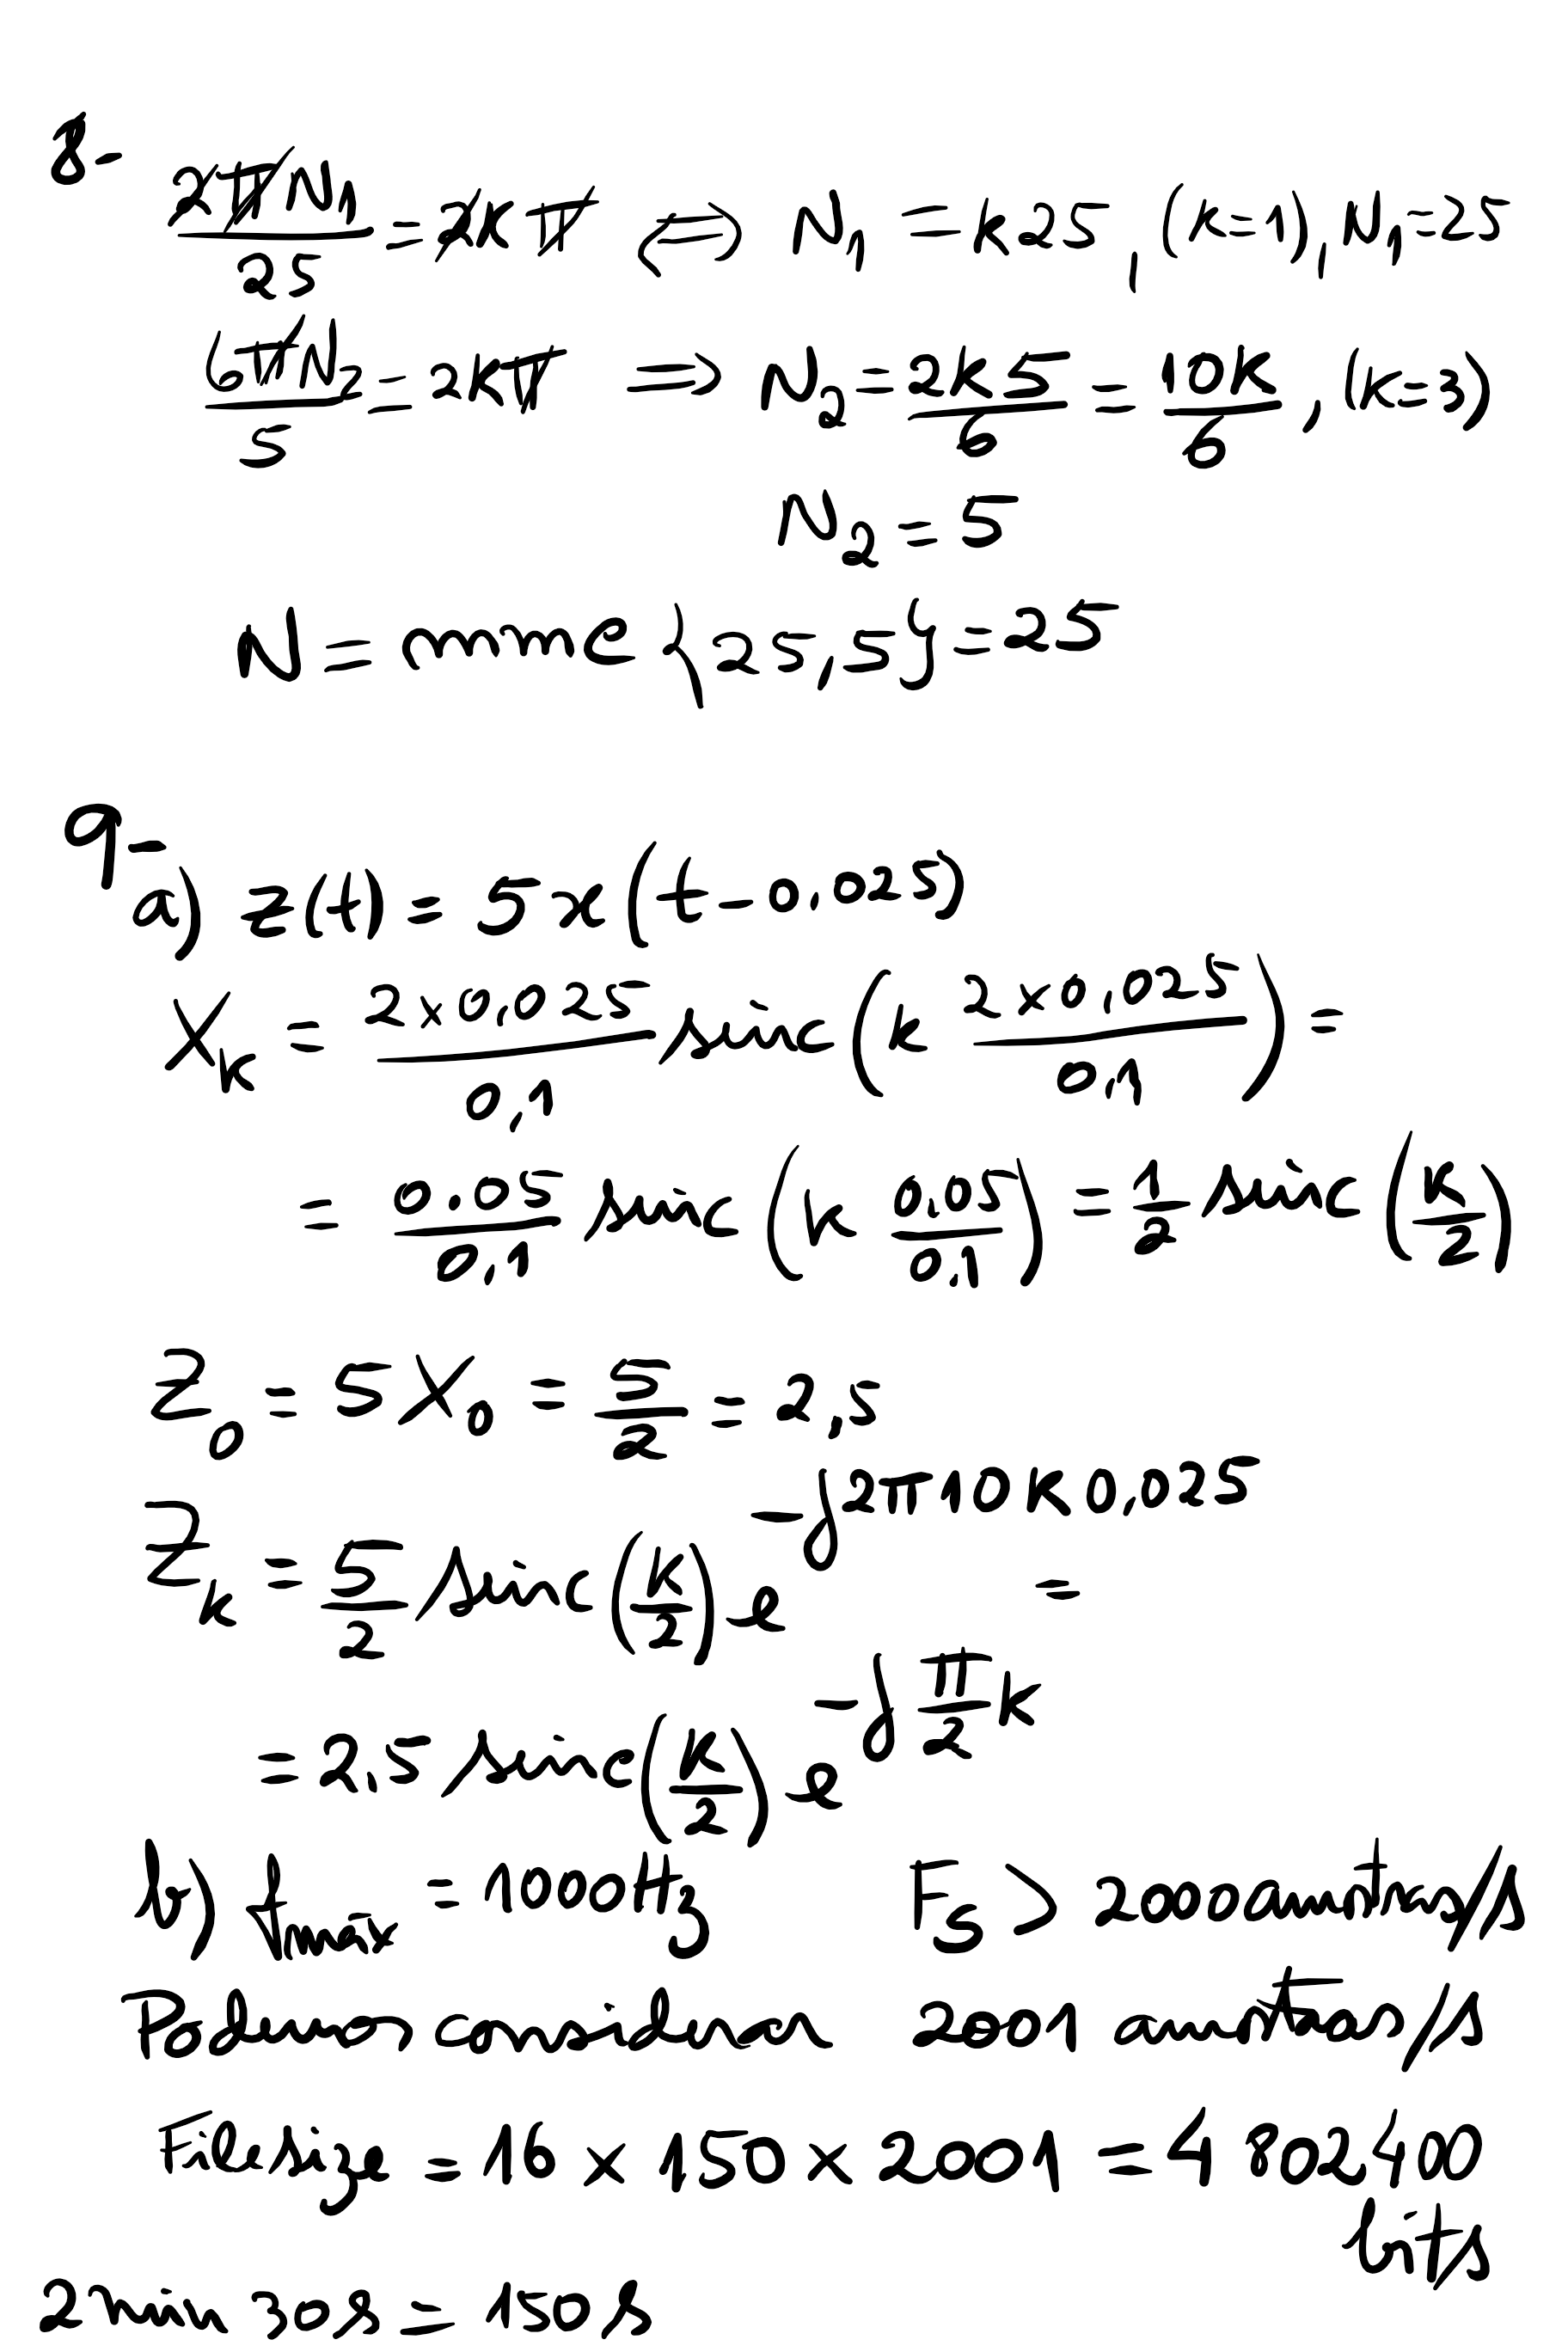 8-
2πN₁/25 = 2kπ ⇔ N₁ = k25, (k=1), N₁=25
6πN₂/5 = 2kπ ⇒ N₂ = 2k5/6 = 10k/6, (k=3)
N₂ = 5
N = mmc {25, 5} = 25
9-
a) z(t) = 5x(t - 0.025)
Xₖ = 2×0.025/0,1 sinc (k 2×0.025/0.1) =
= 0.05/0,1 sinc (k 0.05/0,1) = 1/2 sinc (k/2)
Z₀ = 5X₀ = 5/2 = 2,5
Zₖ = 5/2 sinc(k/2) e^(-j2π10k0.025) =
= 2.5 sinc(k/2) e^(-j π/2 k)
b) fmax = 1000Hz Fs > 2000 amostras/s
Podemos considerar 2001 amostras/s
File size = 16 × 150 × 2001 = 4 802 400
bits
2 min 30s = 150s